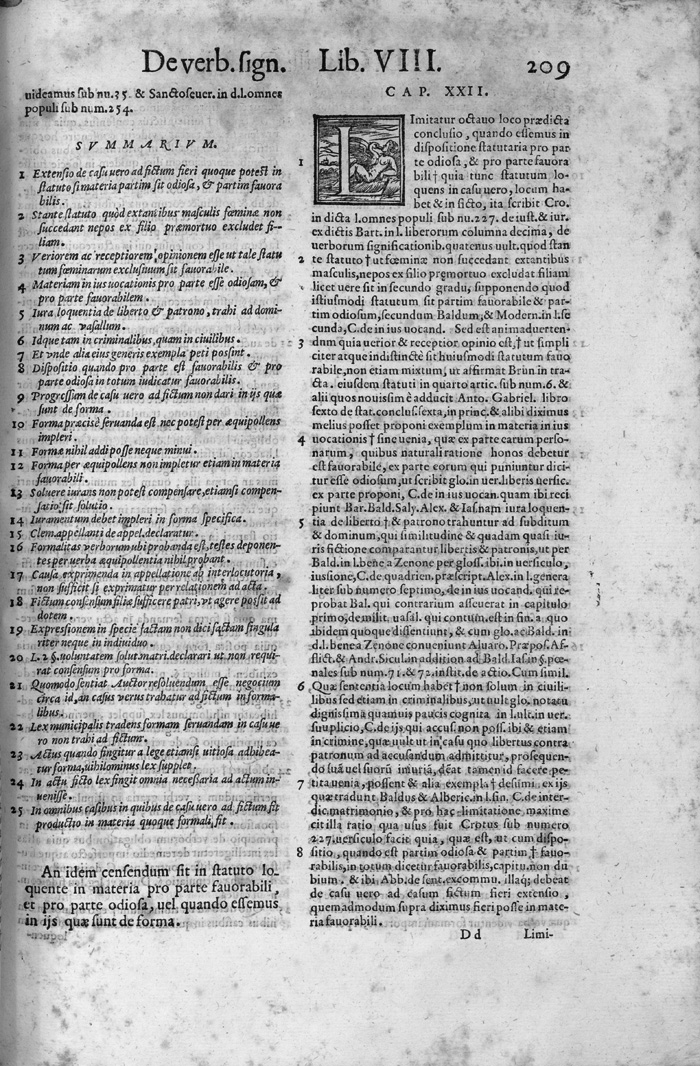 De verb. sign. Lib. VIII. 209
uideamus sub nu. 35. & Sanctoseuer. in d. l. omnes
populi sub num. 254.
SVMMARIVM.
1 Extensio de casu uero ad fictum fieri quoque potest in
statuto si materia partim sit odiosa, & partim fauora
bilis.
2 Stante statuto quòd extantibus masculis fœminæ non
succedant nepos ex filio præmortuo excludet fi-
liam.
3 Veriorem ac receptiorem opinionem esse ut tale statu
tum fœminarum exclusiuum sit fauorabile.
4 Materiam in ius uocationis pro parte esse odiosam, &
pro parte fauorabilem.
5 Iura loquentia de liberto & patrono, trahi ad domi-
num ac vasallum.
6 Idque tam in criminalibus, quam in ciuilibus.
7 Et vnde alia eius generis exempla peti possint.
8 Dispositio quando pro parte est fauorabilis & pro
parte odiosa in totum iudicatur fauorabilis.
9 Progressum de casu uero ad fictum non dari in ijs quæ
sunt de forma.
10 Forma præcisè seruanda est nec potest per æquipollens
impleri.
11 Formæ nihil addi posse neque minui.
12 Forma per æquipollens non impletur etiam in materia
fauorabili.
13 Soluere iurans non potest compensare, etiamsi compen-
satio sit solutio.
14 Iuramentum debet impleri in forma specifica.
15 Clem. appellanti de appel. declaratur.
16 Formalitas verborum ubi probanda est, testes deponen-
tes per uerba æquipollentia nihil probant.
17 Causa exprimenda in appellatione ab interlocutoria,
non sufficit si exprimatur per relationem ad acta.
18 Fictum consensum filiæ sufficere patri, vt agere possit ad
dotem.
19 Expressionem in specie factam non dici factam singula
riter neque in indiuiduo.
20 L. 2 §. voluntatem solut. matri. declarari ut non requi-
rat consensum pro forma.
21 Quomodo sentiat Auctor resoluendum esse negocium
circa id, an casus verus trahatur ad fictum in forma-
libus.
22 Lex municipalis tradens formam seruandam in casu ue
ro non trahi ad fictum.
23 Actus quando fingitur a lege etiamsi uitiosa adhibea-
tur forma, nihilominus lex supplet.
24 In actu ficto lex fingit omnia necessaria ad actum in-
uenisse.
25 In omnibus casibus in quibus de casu uero ad fictum fit
productio in materia quoque formali, fit.
An idem censendum sit in statuto lo-
quente in materia pro parte fauorabili,
et pro parte odiosa, uel quando essemus
in ijs quæ sunt de forma.
CAP. XXII.
LImitatur octauo loco prædicta
conclusio, quando essemus in
dispositione statutaria pro par
te odiosa, & pro parte fauora
1 bili † quia tunc statutum lo-
quens in casu uero, locum ha-
bet & in ficto, ita scribit Cro.
in dicta l. omnes populi sub nu. 227. de iust. & iur.
ex dictis Bart. in l. liberorum columna decima, de
uerborum significationib. quatenus uult. quod stan
2 te statuto † ut fœminæ non succedant extantibus
masculis, nepos ex filio premortuo excludat filiam
licet uere sit in secundo gradu, supponendo quod
istiusmodi statutum sit partim fauorabile & par-
tim odiosum, secundum Baldum, & Modern. in l. se
cunda, C. de in ius uocand. Sed est animaduerten-
3 dum quia uerior & receptior opinio est, † ut simpli
citer atque indistinctè sit huiusmodi statutum fauo
rabile, non etiam mixtum, ut affirmat Brun in tra-
cta. eiusdem statuti in quarto artic. sub num. 6. &
alii quos nouissimè adducit Anto. Gabriel. libro
sexto de stat. conclus. sexta, in princ. & alibi diximus
melius posset proponi exemplum in materia in ius
4 uocationis † sine uenia, quæ ex parte earum perso-
narum, quibus naturali ratione honos debetur
est fauorabilé, ex parte eorum qui puniuntur dici-
tur esse odiosum, ut scribit glo. in uer. liberis uersic.
ex parte proponi, C. de in ius uocan. quam ibi reci
piunt Bar. Bald. Saly. Alex. & Ias. nam iura loquen-
5 tia de liberto † & patrono trahuntur ad subditum
& dominum, qui similitudine & quadam quasi iu-
ris fictione comparantur libertis & patronis, ut per
Bald. in l. bene a Zenone per gloss. ibi. in uersiculo,
iussione, C. de quadrien. præscript. Alex. in l. genera
liter sub numero septimo, de in ius uocand. qui re-
probat Bal. qui contrarium asseuerat in capitulo
primo, de milit. uasal. qui contum. est in fin. a quo
ibidem quoque dissentiunt, & cum glo. ac Bald. in
d. l. bene a Zenone conueniunt Aluaro. Præpos. Af-
flict. & Andr. Sicul. in addition ad Bald. Ias. in §. pœ-
nales sub num. 71. & 72. instit. de actio. Cum simil.
6 Quæ sententia locum habet † non solum in ciuili-
libus sed etiam in criminalibus, ut uult glo. notatu
dignissima quamuis paucis cognita in l. ult. in uer.
suuplicio, C. de ijs qui accus. non poss. ibi & etiam
in crimine, quæ uult ut in casu quo libertus contra
patronum ad accusandum admittitur, prosequen-
do suā uel suorū iniuriā, debeat tamen id facere pe-
7 tita uenia, possent & alia exempla † desumi ex ijs
quæ tradunt Baldus & Alberic. in l. fin. C. de inter-
dic. matrimonio, & pro hac limitatione, maxime
cit illa ratio qua usus fuit Crotus sub numero
227. uersiculo facit quia, quæ est, ut cum dispo-
8 sitio, quando est partim odiosa & partim † fauo-
rabilis, in totum dicetur fauorabilis, capitu. non du
bium, & ibi Abb. de sent. excommu. illaq; debeat
de casu uero ad casum fictum fieri extensio,
quemadmodum supra diximus fieri posse in mate-
ria fauorabili.
D d Limi-